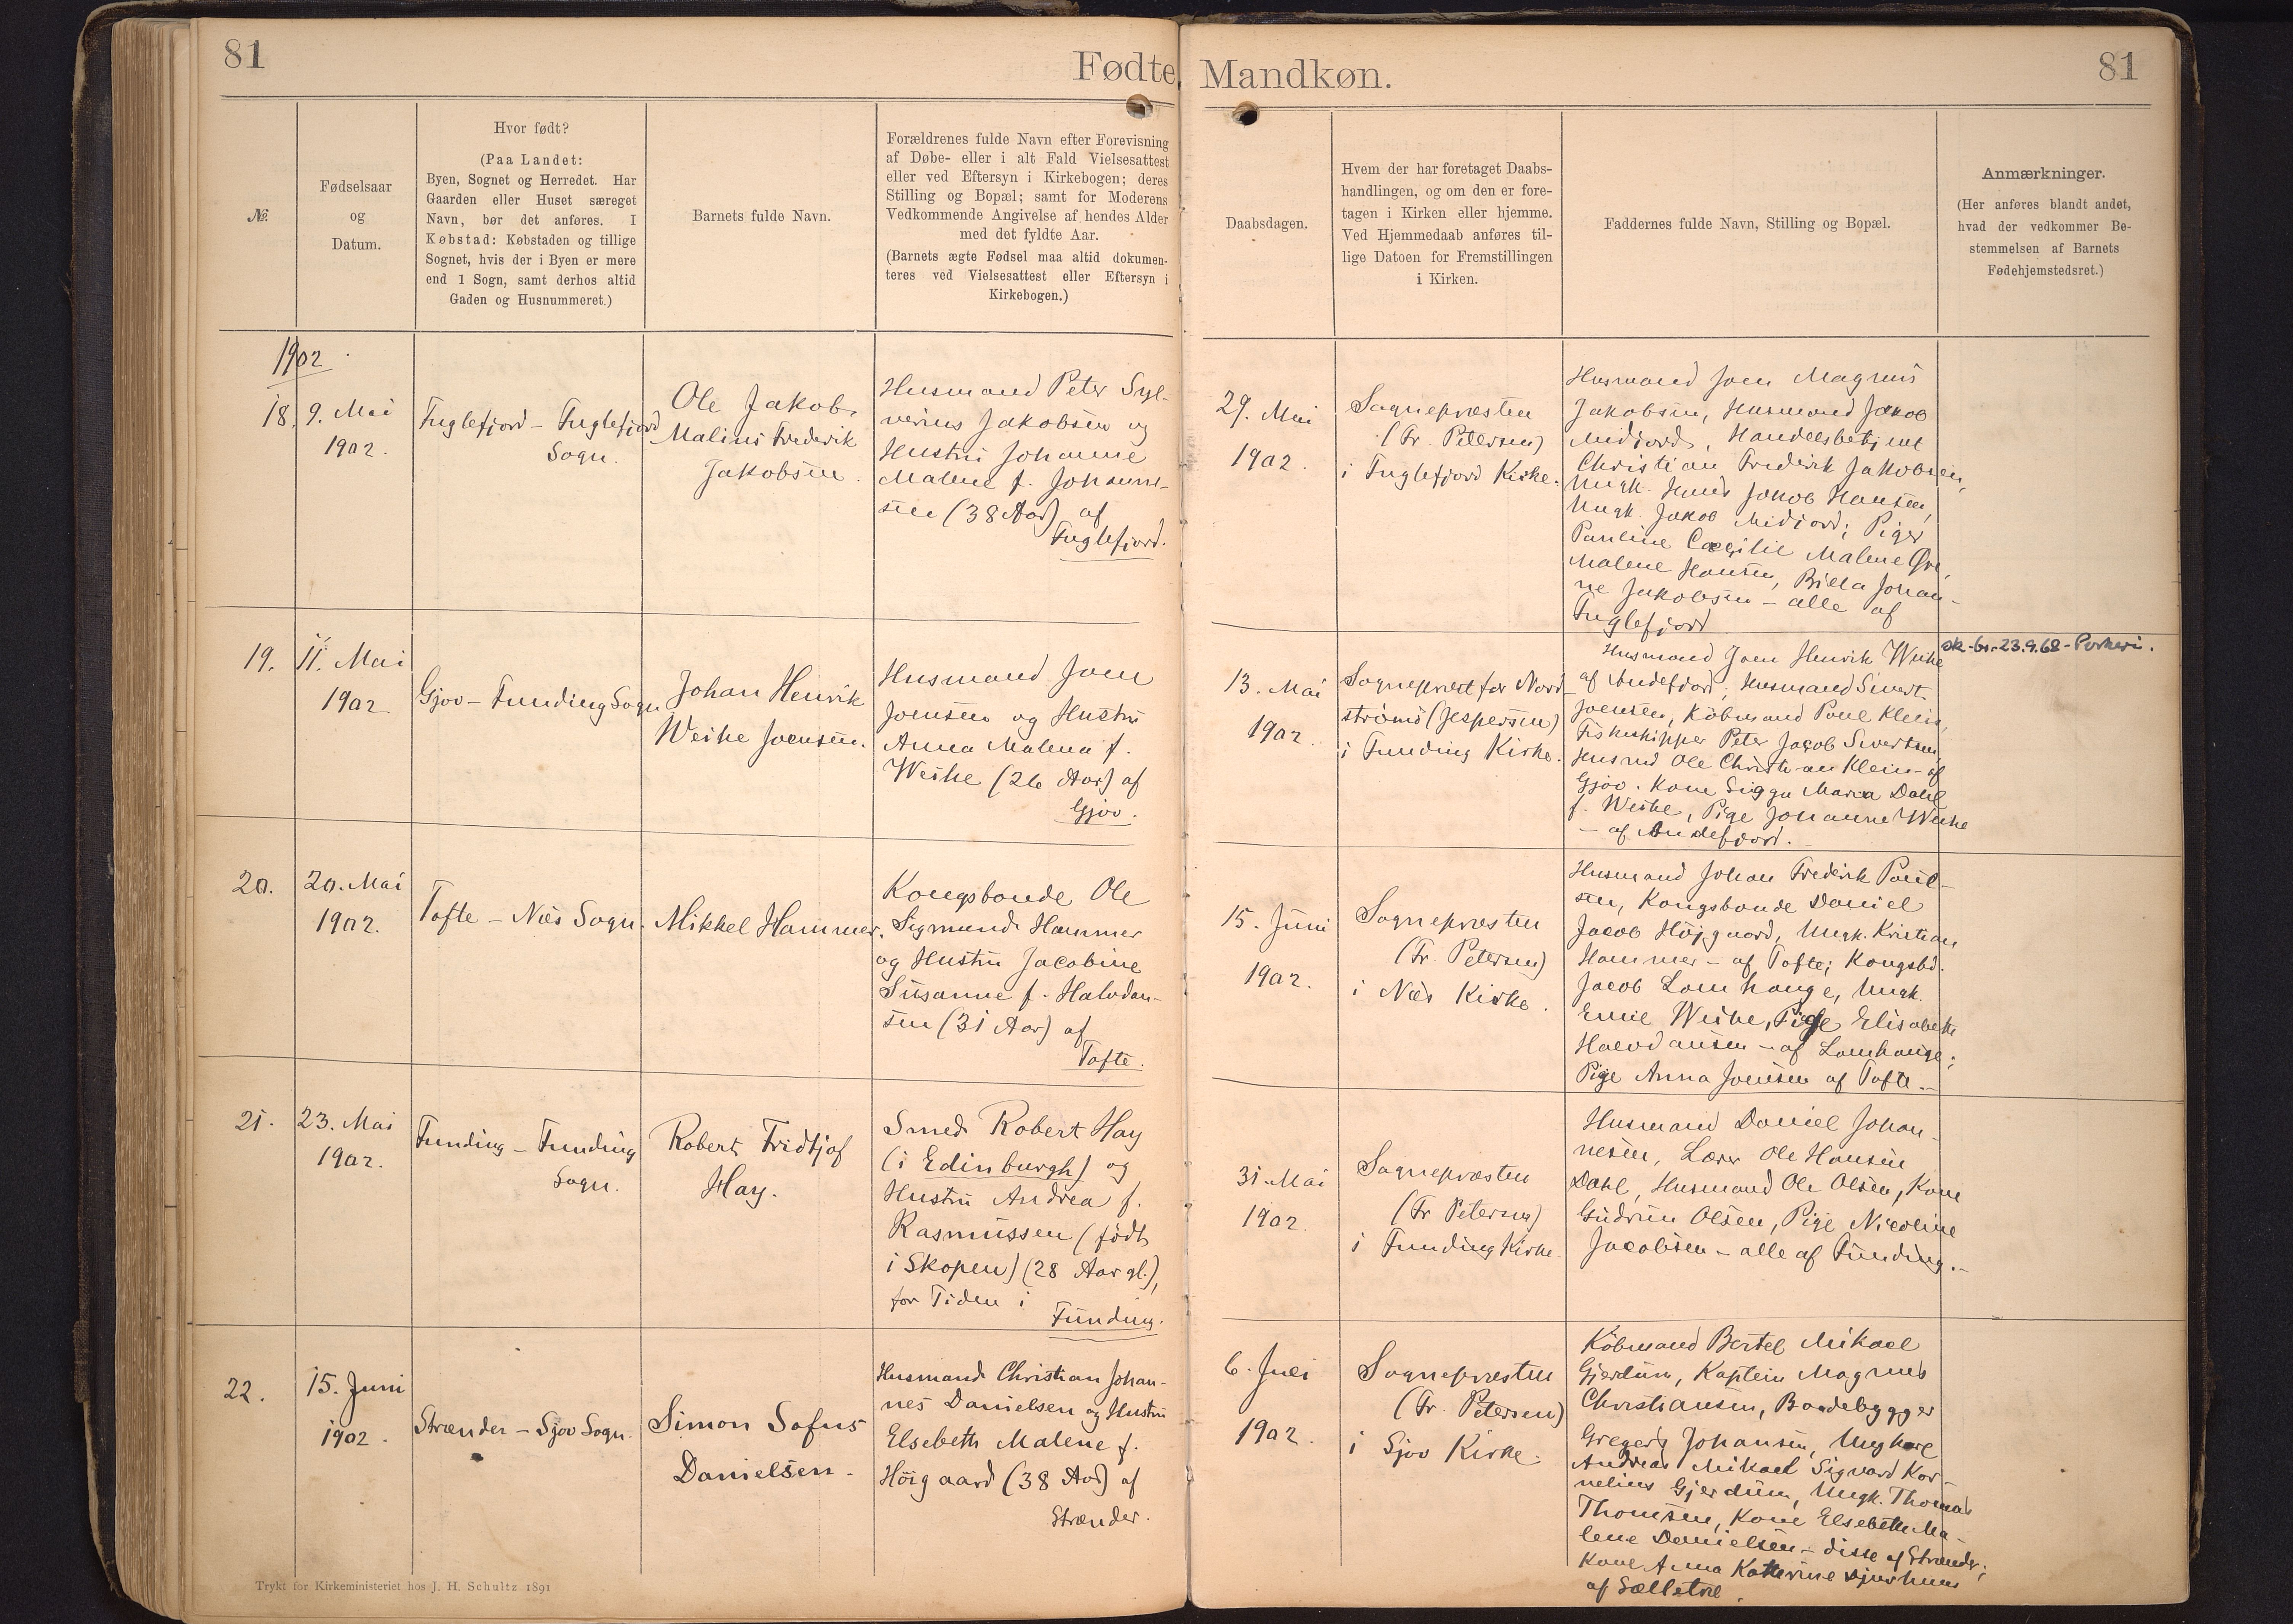 81
Fødte,
Mandkøn.
81
№.
Fødselsaar
og
Datum.
Hvor født?
(Paa Landet:
Byen, Sognet og Herredet. Har
Gaarden eller Huset særeget
Navn, bør det anføres. I
Købstad: Købstaden og tillige
Sognet, hvis der i Byen er mere
end 1 Sogn, samt derhos altid
Gaden og Husnummeret.)
Barnets fulde Navn.
Forældrenes fulde Navn efter Forevisning
af Døbe- eller i alt Fald Vielsesattest
eller ved Eftersyn i Kirkebogen; deres
Stilling og Bopæl; samt for Moderens
Vedkommende Angivelse af hendes Alder
med det fyldte Aar.
(Barnets ægte Fødsel maa altid dokumen-
teres ved Vielsesattest eller Eftersyn i
Kirkebogen.)
Daabsdagen.
Hvem der har foretaget Daabs-
handlingen, og om den er fore-
tagen i Kirken eller hjemme.
Ved Hjemmedaab anføres til-
lige Datoen for Fremstillingen
i Kirken.
Faddernes fulde Navn, Stilling og Bopæl.
Anmærkninger.
(Her anføres blandt andet,
hvad der vedkommer Be-
stemmelsen af Barnets
Fødehjemstedsret.)
1902
18.
9. Mai
1902.
Fuglefjord – Fuglefjord
Sogn.
Ole Jakob
Malius Frederik
Jakobsen.
Husmand Peter Syl-
verius Jakobsen og
Hustru Johanne
Malene f. Johanne-
sen (38 Aar) af
Fuglefjord.
29. Mai
1902.
Sognepræsten
(Fr. Petersen)
i Fuglefjord Kirke.
Husmand Joen Magnus
Jakobsen, Husmand Jakob
Midjord, Handelsbetjent
Christian Frederik Jakobsen,
Ungk. Hans Jakob Hansen,
Ungk. Jakob Midjord; Piger
Pauline Cæcilie Malene
Malene Hansen, Billa Johan-
ne Jakobsen – alle af
Fuglefjord
19.
11. Mai
1902
Gjov – Funding Sogn
Johan Henrik
Weihe Joensen.
Husmand Joen
Joensen og Hustru
Anna Malena f.
Weihe (26 Aar) af
Gjov.
13. Mai
1902.
Sognepræst for Nord-
strömö (Jespersen)
i Funding Kirke.
Husmand Joen Henrik Weihe
af Andefjord; Husmand Sivert
Joensen, Köbmand Poul Klein,
Fiskeskipper Peter Jacob Sivertsen,
Husmd Ole Christian Klein – af
Gjov. Kone Sigga Maria Dahl
f. Weihe, Pige Johanne Weihe
– af Andefjord.
sk-br-23.9.68-Porkeri.
20.
20. Mai
1902.
Tofte – Næs Sogn.
Mikkel Hammer.
Kongsbonde Ole
Sigmund Hammer
og Hustru Jacobine
Susanne f. Halvdan-
sen (31 Aar) af
Tofte.
15. Juni
1902.
Sognepræsten
(Fr. Petersen)
i Næs Kirke.
Husmand Johan Frederik Poul-
sen, Kongsbonde Daniel
Jacob Höjgaard, Ungk. Kristian
Hammer – af Tofte; Kongsbd.
Jacob Lamhauge, Ungk.
Emil Weihe, Pige Elisabeth
Halvdansen – af Lamhauge;
Pige Anna Joensen af Tofte.–
21.
23. Mai
1902.
Funding – Funding
Sogn.
Robert Fridtjof
Hay.
Smed Robert Hay
(i Edinburgh) og
Hustru Andrea f.
Rasmussen (födt
i Skopen) (28 Aar gl.),
for Tiden i
Funding.
31. Mai
1902.
Sognepræsten
(Fr Petersen)
i Funding Kirke.
Husmand Daniel Johan-
nesen, Lærer Ole Hansen
Dahl, Husmand Ole Olsen, Kone
Gudrun Olsen, Pige Nicoline
Jacobsen – alle af Funding.–
22.
15. Juni
1902.
Strænder – Sjov Sogn.
Simon Sofus
Danielsen.
Husmand Christian Johan-
nes Danielsen og Hustru
Elsebeth Malene f.
Höigaard (38 Aar) af
Strænder.
6. Juli
1902.
Sognepræsten
(Fr. Petersen)
i Sjov Kirke.
Köbmand Bertel Mikael
Gjerdum, Kaptein Magnus
Christiansen, Baadebygger
Gregers Johansen, Ungkarl
Andreas Mikael Sigvard Kor-
nelius Gjerdum, Ungk. Thomas
Thomsen, Kone Elsebeth Ma-
lene Danielsen – disse af Strænder;
Kone Anna Katherine Djurhuus
af Selletræ.
Trykt for Kirkeministeriet hos J. H. Schultz 1891